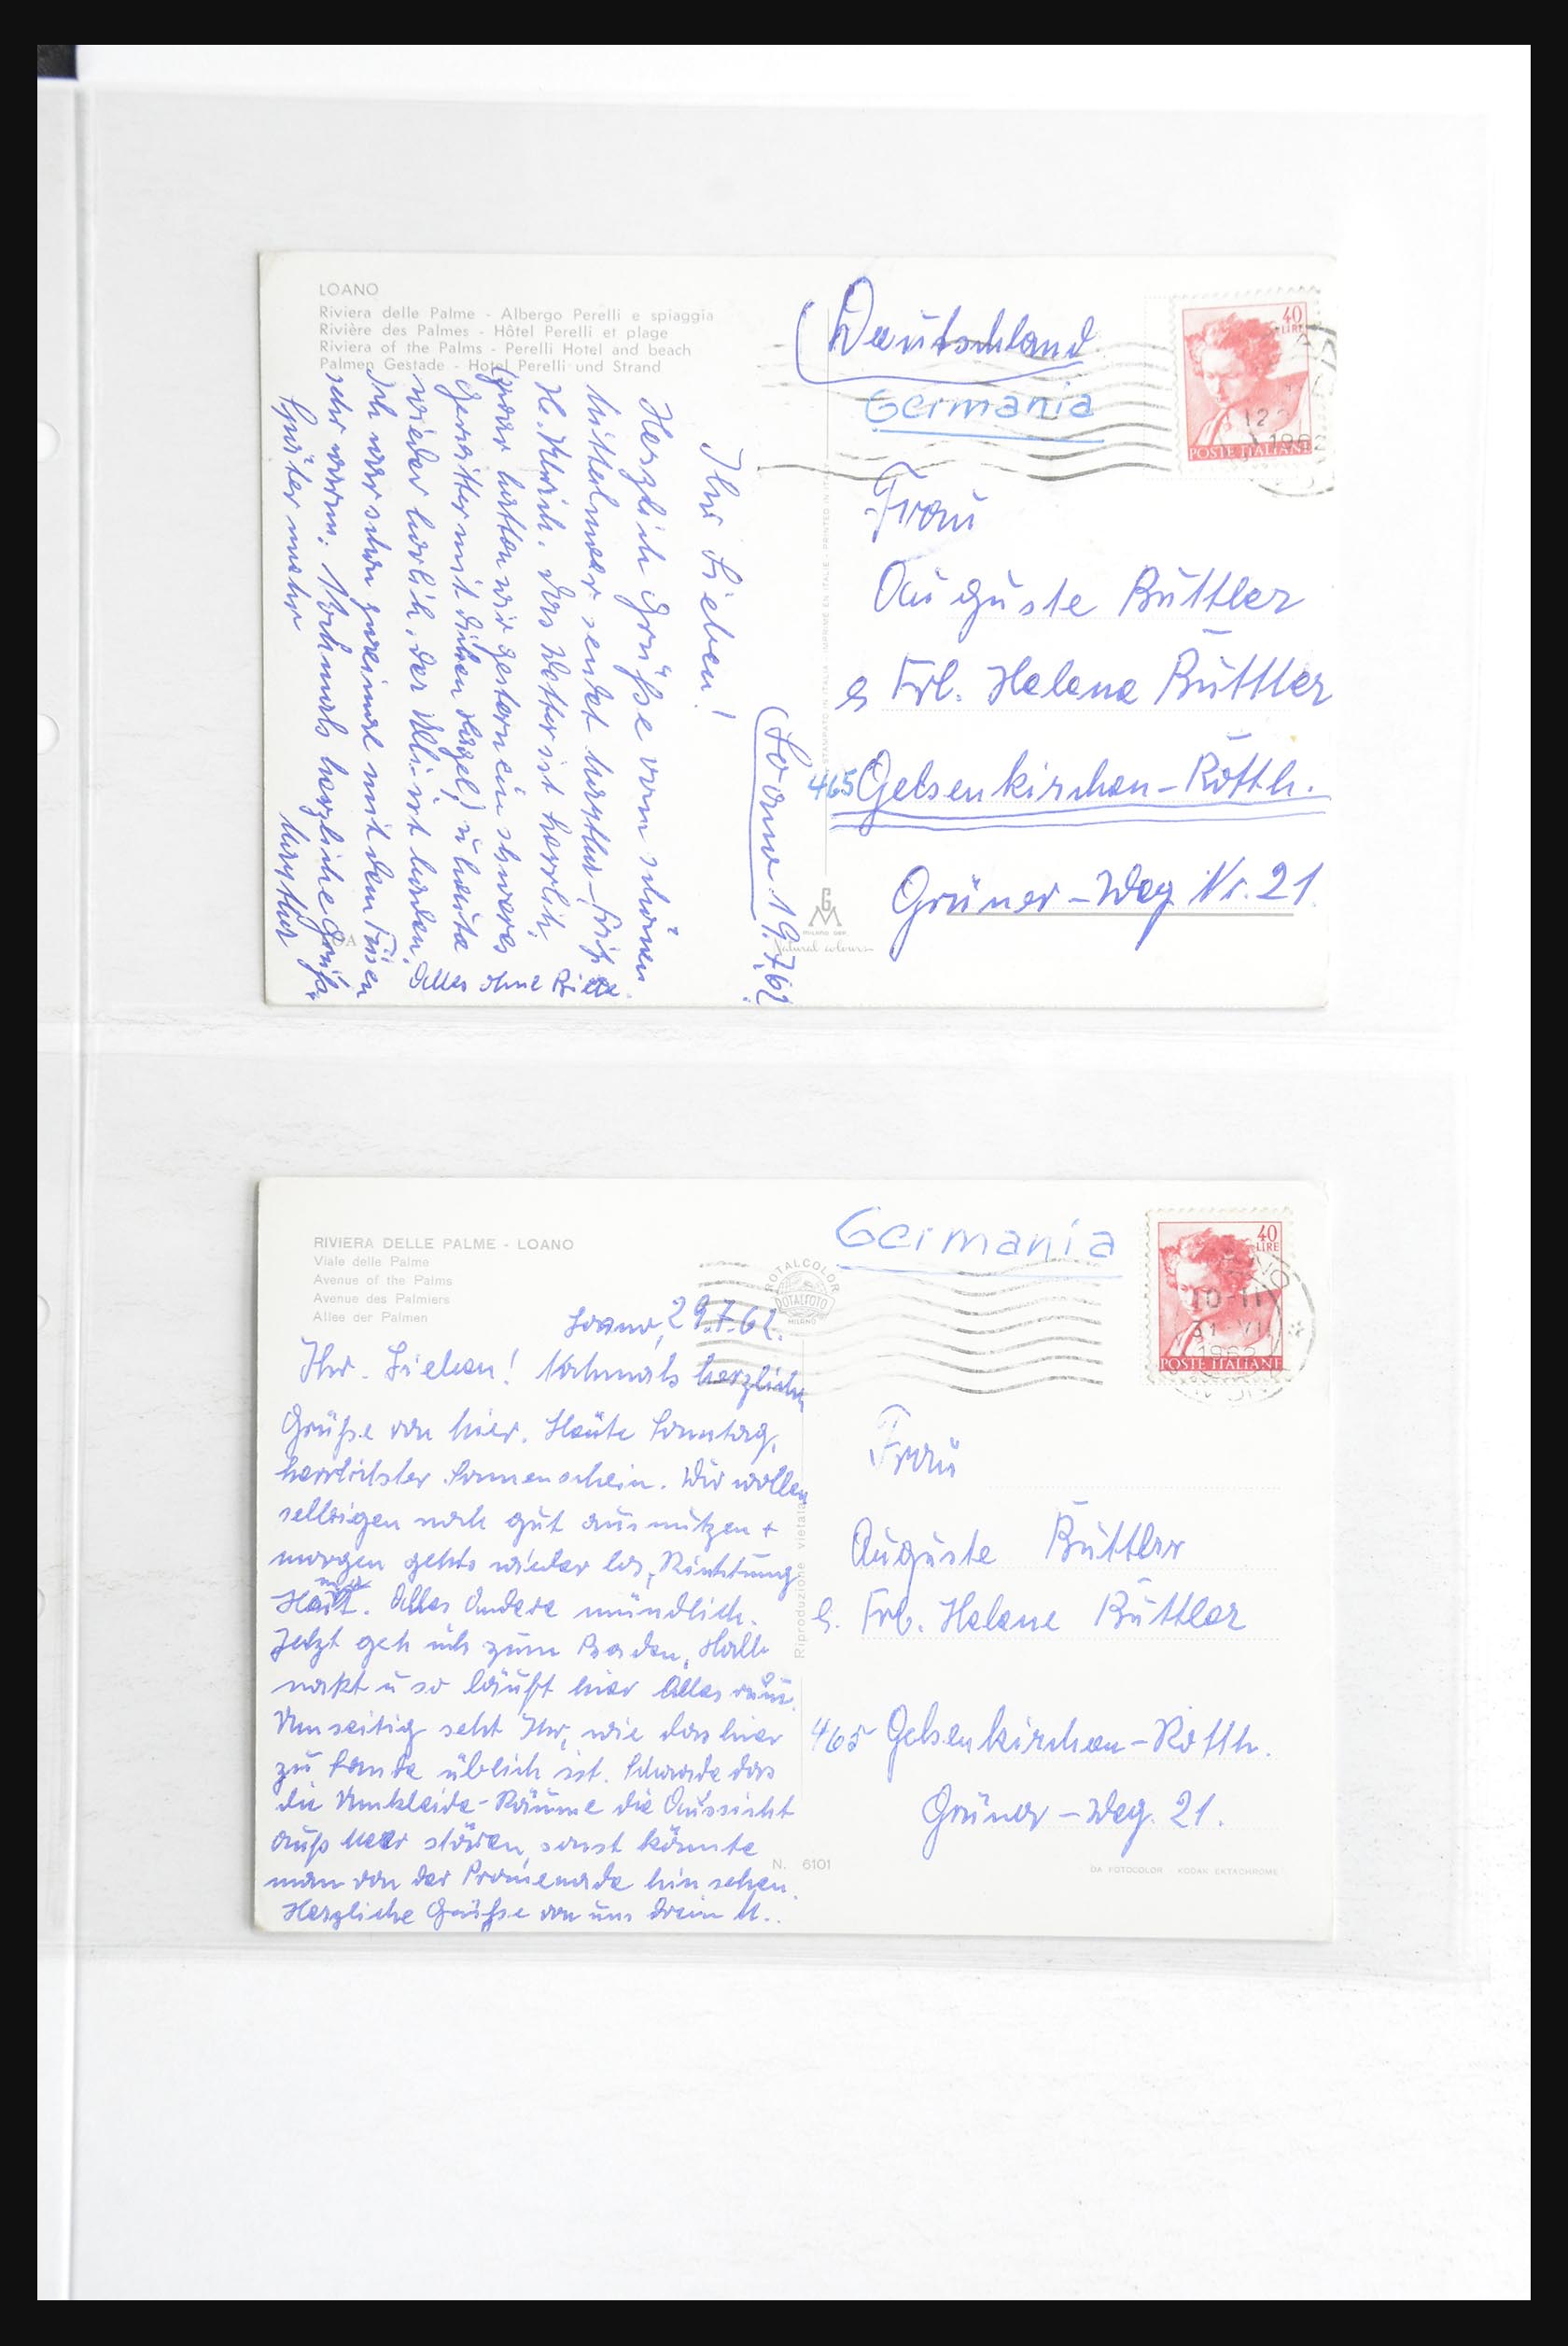 LOANO
Riviera delle Palme - Albergo Perelli e spiaggia
Rivière des Palmes - Hôtel Perelli et plage
Riviera of the Palms - Perelli Hotel and beach
Palmen Gestade - Hotel Perelli und Strand
Loano 19.7.62.
Ihr Lieben!
Herzlich Grüße vom schönen
Mittelmeer sendet
Das Wetter ist herrlich,
hatten wir gestern ein schweres
Gewitter mit dicken Hagel) ü heute
wieder
Ich war schon zweimal mit den Füssen
sehr warm. Nochmals herzliche Grüße
Später mehr
Alles ohne
STAMPATO IN ITALIA - IMPRIMÉ EN ITALIE - PRINTED IN ITALY
G
M
MILANO
Natural colours
Deutschland
Germania
40
LIRE
POSTE ITALIANE
12
1962
Frau
Auguste Büttler
Frl. Helene Büttler
465 Gelsenkirchen-Rotth.
Grüner-Weg Nr. 21.
RIVIERA DELLE PALME - LOANO
Viale delle Palme
Avenue of the Palms
Avenue des Palmiers
Allee der Palmen
ROTALCOLOR
ROTALFOTO
MILANO
Loano, 29.7.62.
Ihr Lieben! Nochmals herzliche
Grüße von hier. Heute Sonntag,
herrlichster Sonnenschein. Wir wollen
selbigen noch gut ausnützen +
morgen gehts wieder los, Richtung
Alles Andere mündlich.
Jetzt geh ich zum Baden, Halb
nakt ü so läuft hier Alles rum.
Umseitig seht Ihr, wie das hier
zu Lande üblich ist. Schade das
die Umkleide-Räume die Aussicht
aufs Meer stören, sonst könnte
man von der Promenade hin sehen.
Herzliche Grüße von uns drein M..
Riproduzione vietata
N. 6101
Germania
40
LIRE
POSTE ITALIANE
10-11
1962
Frau
Auguste Büttler
Frl. Helene Büttler
465 Gelsenkirchen-Rotth.
Grüner-Weg. 21.
DA FOTOCOLOR KODAK EKTACHROME